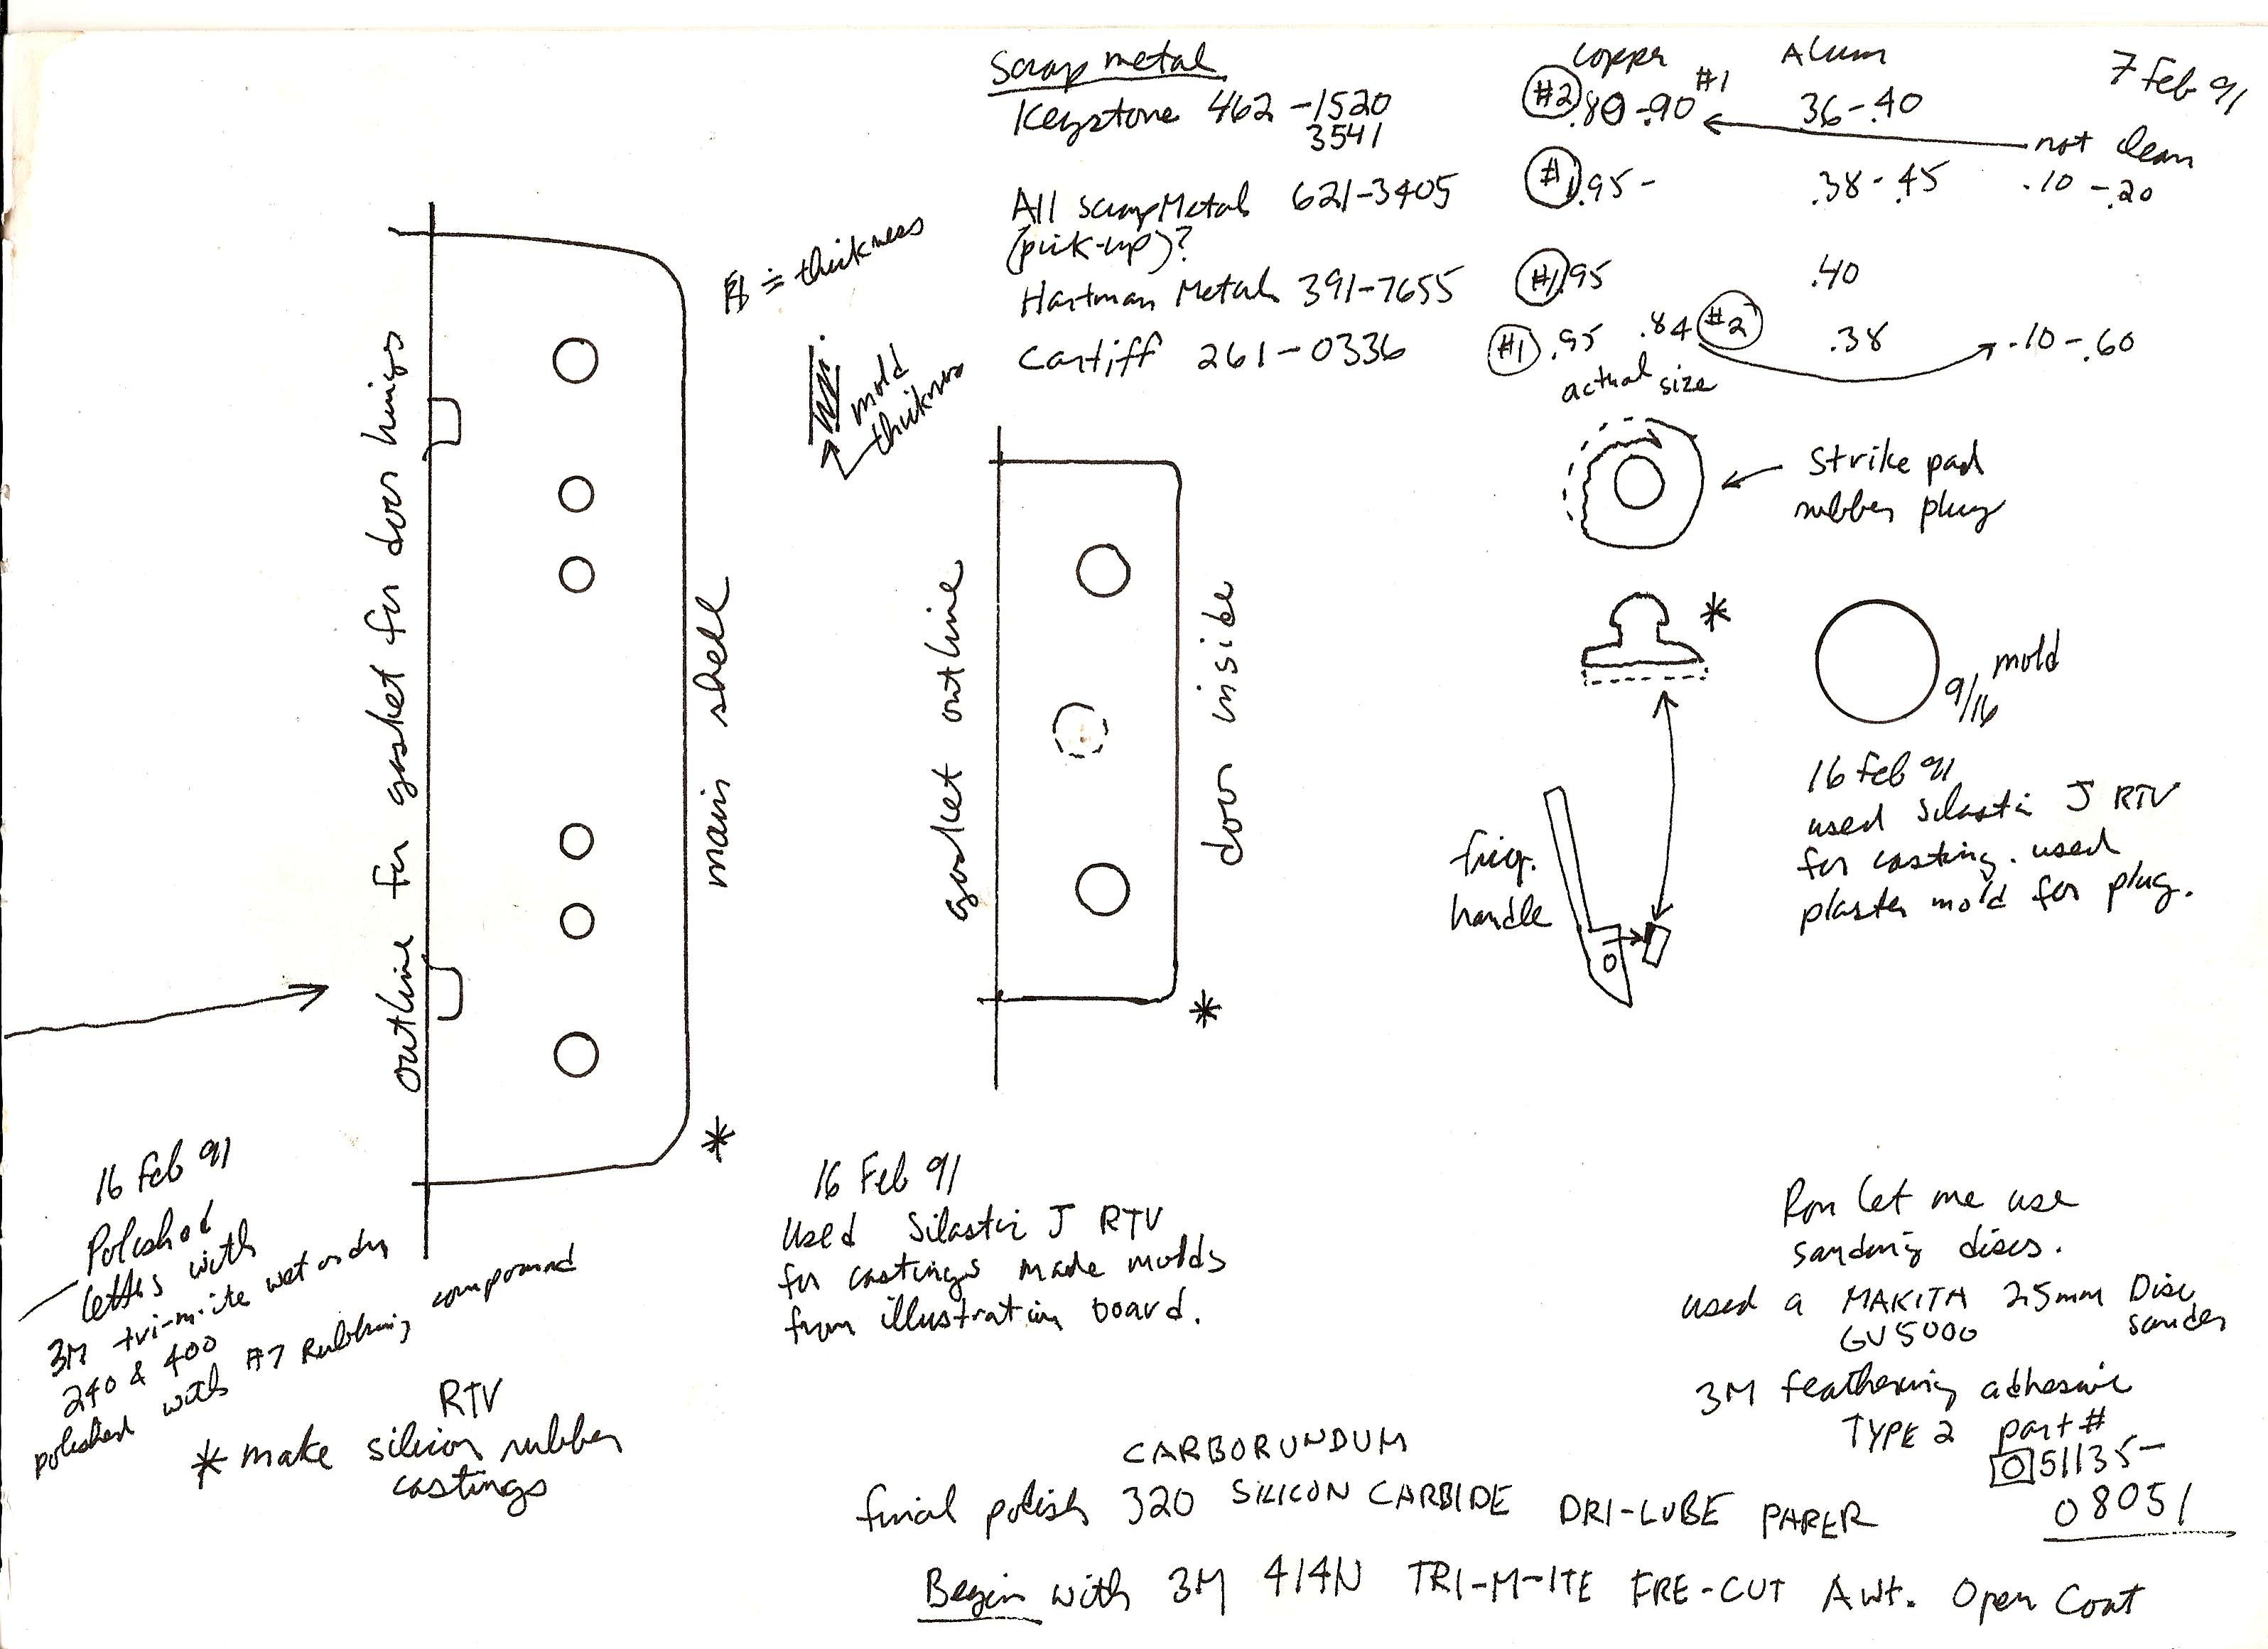 7 Feb 91
Scrap metal
Copper Alum
Keystone 462-1520
3541
#2 .80-.90 #1 36-.40
not clean
All Scrap Metal 621-3405
(pick-up)?
#1 .95- .38-.45 .10-.20
Hartman Metals 391-7655
#1 .95 .40
Cartiff 261-0336
#1 .95 .84 #2 .38 .10-.60
thickness
mold
thickness
outline for gasket for door hings
main shell
gasket outline
door inside
actual size
Strike pad
rubber plug
*
mold
9/16
16 Feb 91
used Silastic J RTV
for casting. used
plaster mold for plug.
frig.
handle
*
*
16 Feb 91
Polished
letters with
3M tri-m-ite wet or dry
240 & 400
polished with #7 Rubbing compound
RTV
* make silicon rubber
castings
16 Feb 91
Used Silastic J RTV
for castings made molds
from illustration board.
Ron let me use
sanding discs.
used a MAKITA 25mm Disc
GV5000 sander
3M feathering adhesive
TYPE 2 part #
051135-
08051
CARBORUNDUM
final polish 320 SILICON CARBIDE DRI-LUBE PAPER
Begin with 3M 414N TRI-M-ITE FRE-CUT A wt. Open Coat